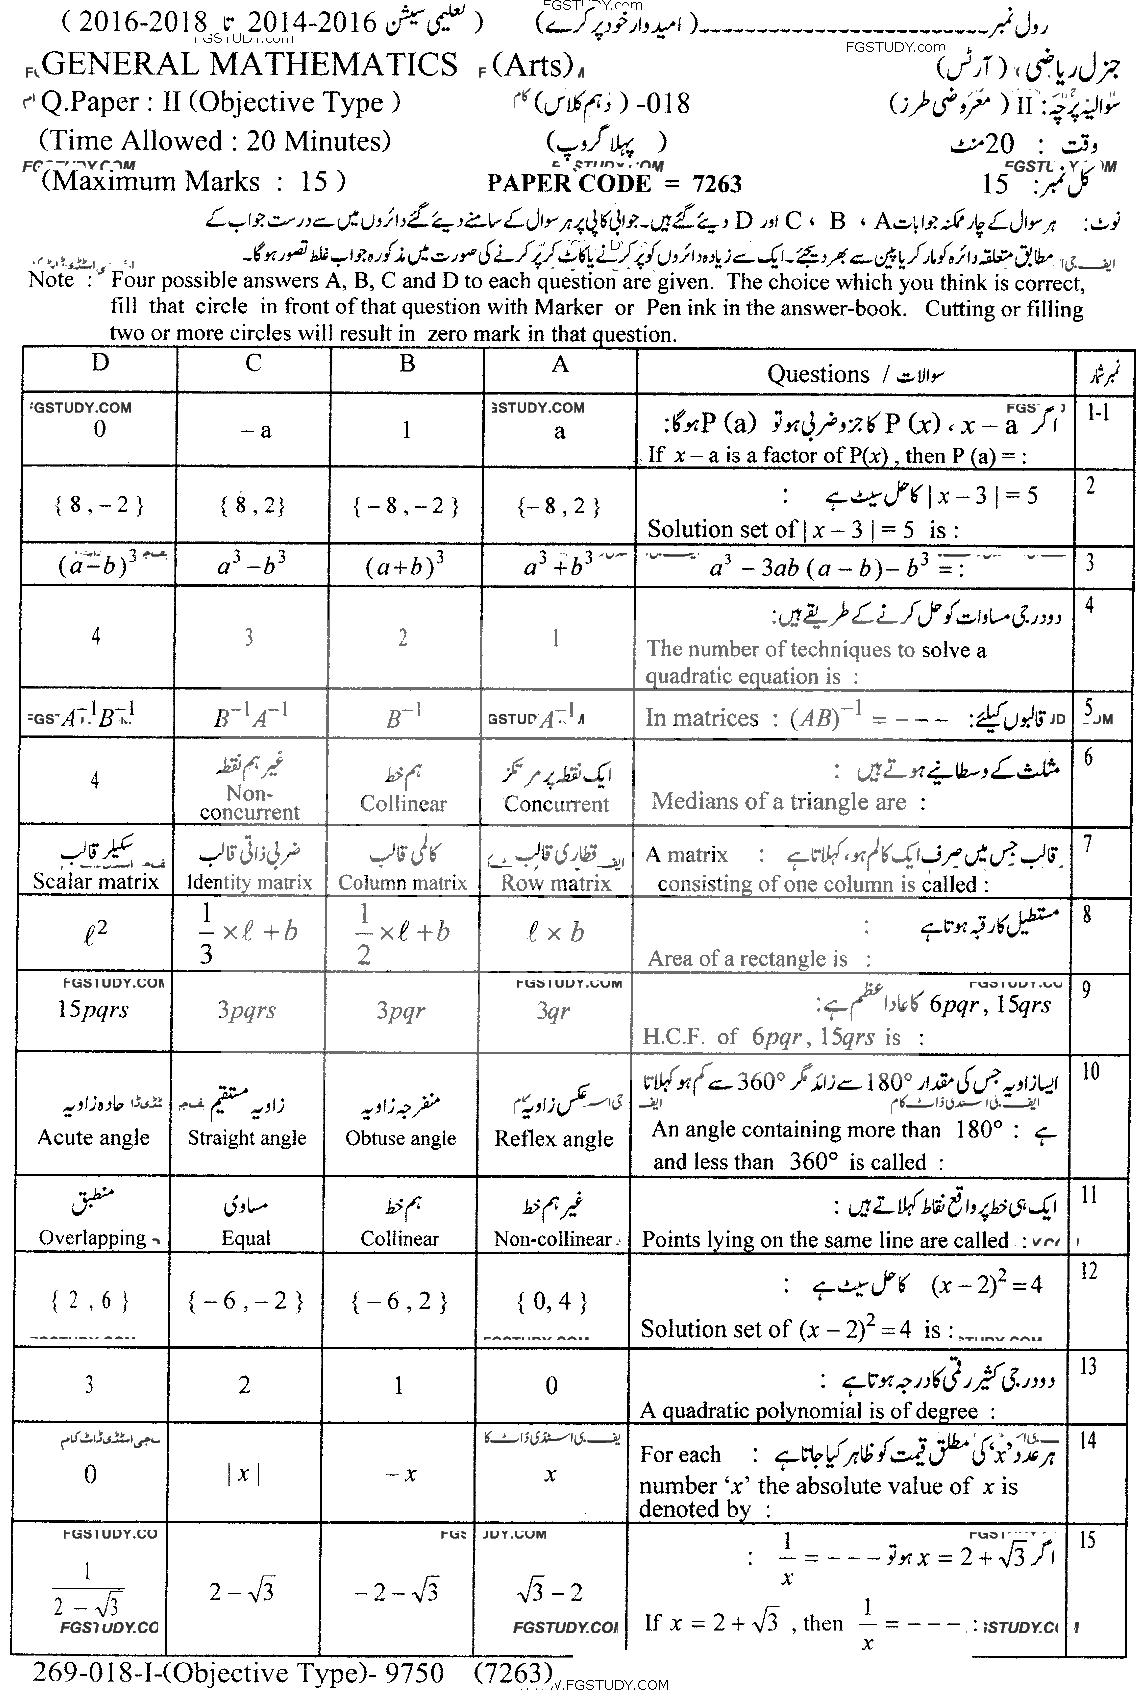 ( تعلیمی سیشن 2016-2014 تا 2018-2016 ) رول نمبر ( امیدوار خود پر کرے )
FGSTUDY.com
GENERAL MATHEMATICS (Arts) جنرل ریاضی ( آرٹس )
Q.Paper : II (Objective Type ) 018- (دہم کلاس) سوالیہ پرچہ : II ( معروضی طرز )
(Time Allowed : 20 Minutes) ( پہلا گروپ ) وقت : 20 منٹ
(Maximum Marks : 15 ) PAPER CODE = 7263 کل نمبر : 15
نوٹ : ہر سوال کے چار ممکنہ جوابات A ، B ، C اور D دیئے گئے ہیں۔ جوابی کاپی پر ہر سوال کے سامنے دیئے گئے دائروں میں سے درست جواب کے
مطابق متعلقہ دائرہ کو مارکر یا پین سے بھر دیجئے۔ ایک سے زیادہ دائروں کو پر کرنے یا کاٹ کر پر کرنے کی صورت میں مذکورہ جواب غلط تصور ہوگا۔
Note : Four possible answers A, B, C and D to each question are given. The choice which you think is correct,
fill that circle in front of that question with Marker or Pen ink in the answer-book. Cutting or filling
two or more circles will result in zero mark in that question.
D C B A Questions / سوالات نمبر شمار
1-1 اگر P (x) ، x – a کا جزو ضربی ہو تو P (a) ہوگا:
0 – a 1 a If x – a is a factor of P(x) , then P (a) = :
2 | x – 3 | = 5 کا حل سیٹ ہے :
{ 8 , – 2 } { 8 , 2} { – 8 , – 2 } {– 8 , 2 } Solution set of | x – 3 | = 5 is :
3 (a–b)³ a³ –b³ (a+b)³ a³ +b³ a³ – 3ab (a – b)– b³ = :
4 دو درجی مساوات کو حل کرنے کے طریقے ہیں:
4 3 2 1 The number of techniques to solve a
quadratic equation is :
5 A⁻¹B⁻¹ B⁻¹A⁻¹ B⁻¹ A⁻¹ In matrices : (AB)⁻¹ = – – – قالبوں کیلئے:
6 مثلث کے وسطانیے ہوتے ہیں :
غیر ہم نقطہ ہم خط ایک نقطہ پر مرتکز
4 Non-concurrent Collinear Concurrent Medians of a triangle are :
7 سکیلر قالب ضربی ذاتی قالب کالمی قالب قطاری قالب A matrix : قالب جس میں صرف ایک کالم ہو، کہلاتا ہے
Scalar matrix Identity matrix Column matrix Row matrix consisting of one column is called :
8 مستطیل کا رقبہ ہوتا ہے :
ℓ² 1/3 ×ℓ + b 1/2 ×ℓ + b ℓ × b Area of a rectangle is :
FGSTUDY.COM
9 6pqr , 15qrs کا عاد اعظم ہے :
15pqrs 3pqrs 3pqr 3qr H.C.F. of 6pqr , 15qrs is :
10 ایسا زاویہ جس کی مقدار 180° سے زائد مگر 360° سے کم ہو کہلاتا
حادہ زاویہ زاویہ مستقیم منفرجہ زاویہ عکس زاویہ
Acute angle Straight angle Obtuse angle Reflex angle An angle containing more than 180° : ہے
and less than 360° is called :
11 منطبق مساوی ہم خط غیر ہم خط ایک ہی خط پر واقع نقاط کہلاتے ہیں :
Overlapping Equal Collinear Non-collinear Points lying on the same line are called :
12 (x – 2)² = 4 کا حل سیٹ ہے :
{ 2 , 6 } { – 6 , – 2 } { – 6 , 2 } { 0, 4 } Solution set of (x – 2)² = 4 is :
13 دو درجی کثیر رقمی کا درجہ ہوتا ہے :
3 2 1 0 A quadratic polynomial is of degree :
14 For each : ہر عدد ’x‘ کی مطلق قیمت کو ظاہر کیا جاتا ہے
0 | x | – x x number ‘x’ the absolute value of x is
denoted by :
15 اگر x = 2 + √3 ہو تو 1/x = – – – :
1/(2 – √3) 2 – √3 – 2 – √3 √3 – 2 If x = 2 + √3 , then 1/x = – – – :
FGSTUDY.COM
269-018-I-(Objective Type)- 9750 (7263)
WWW.FGSTUDY.COM